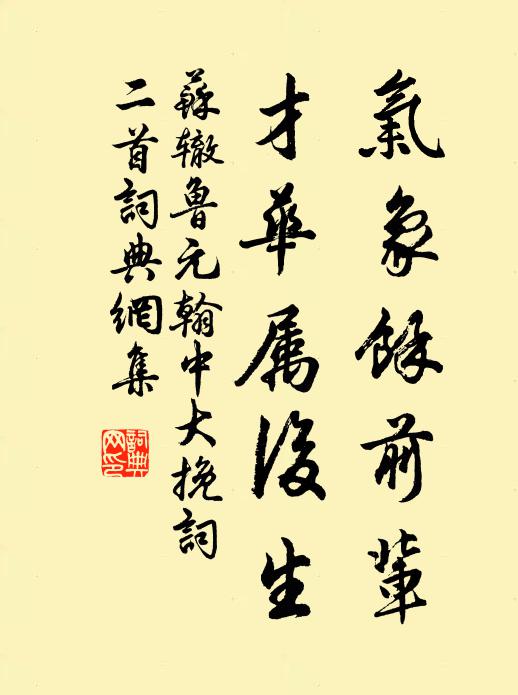 氣象餘前輩
才華属後生
蘇辙魯元翰中大挽詞
二首詞典網集
詞典
网印